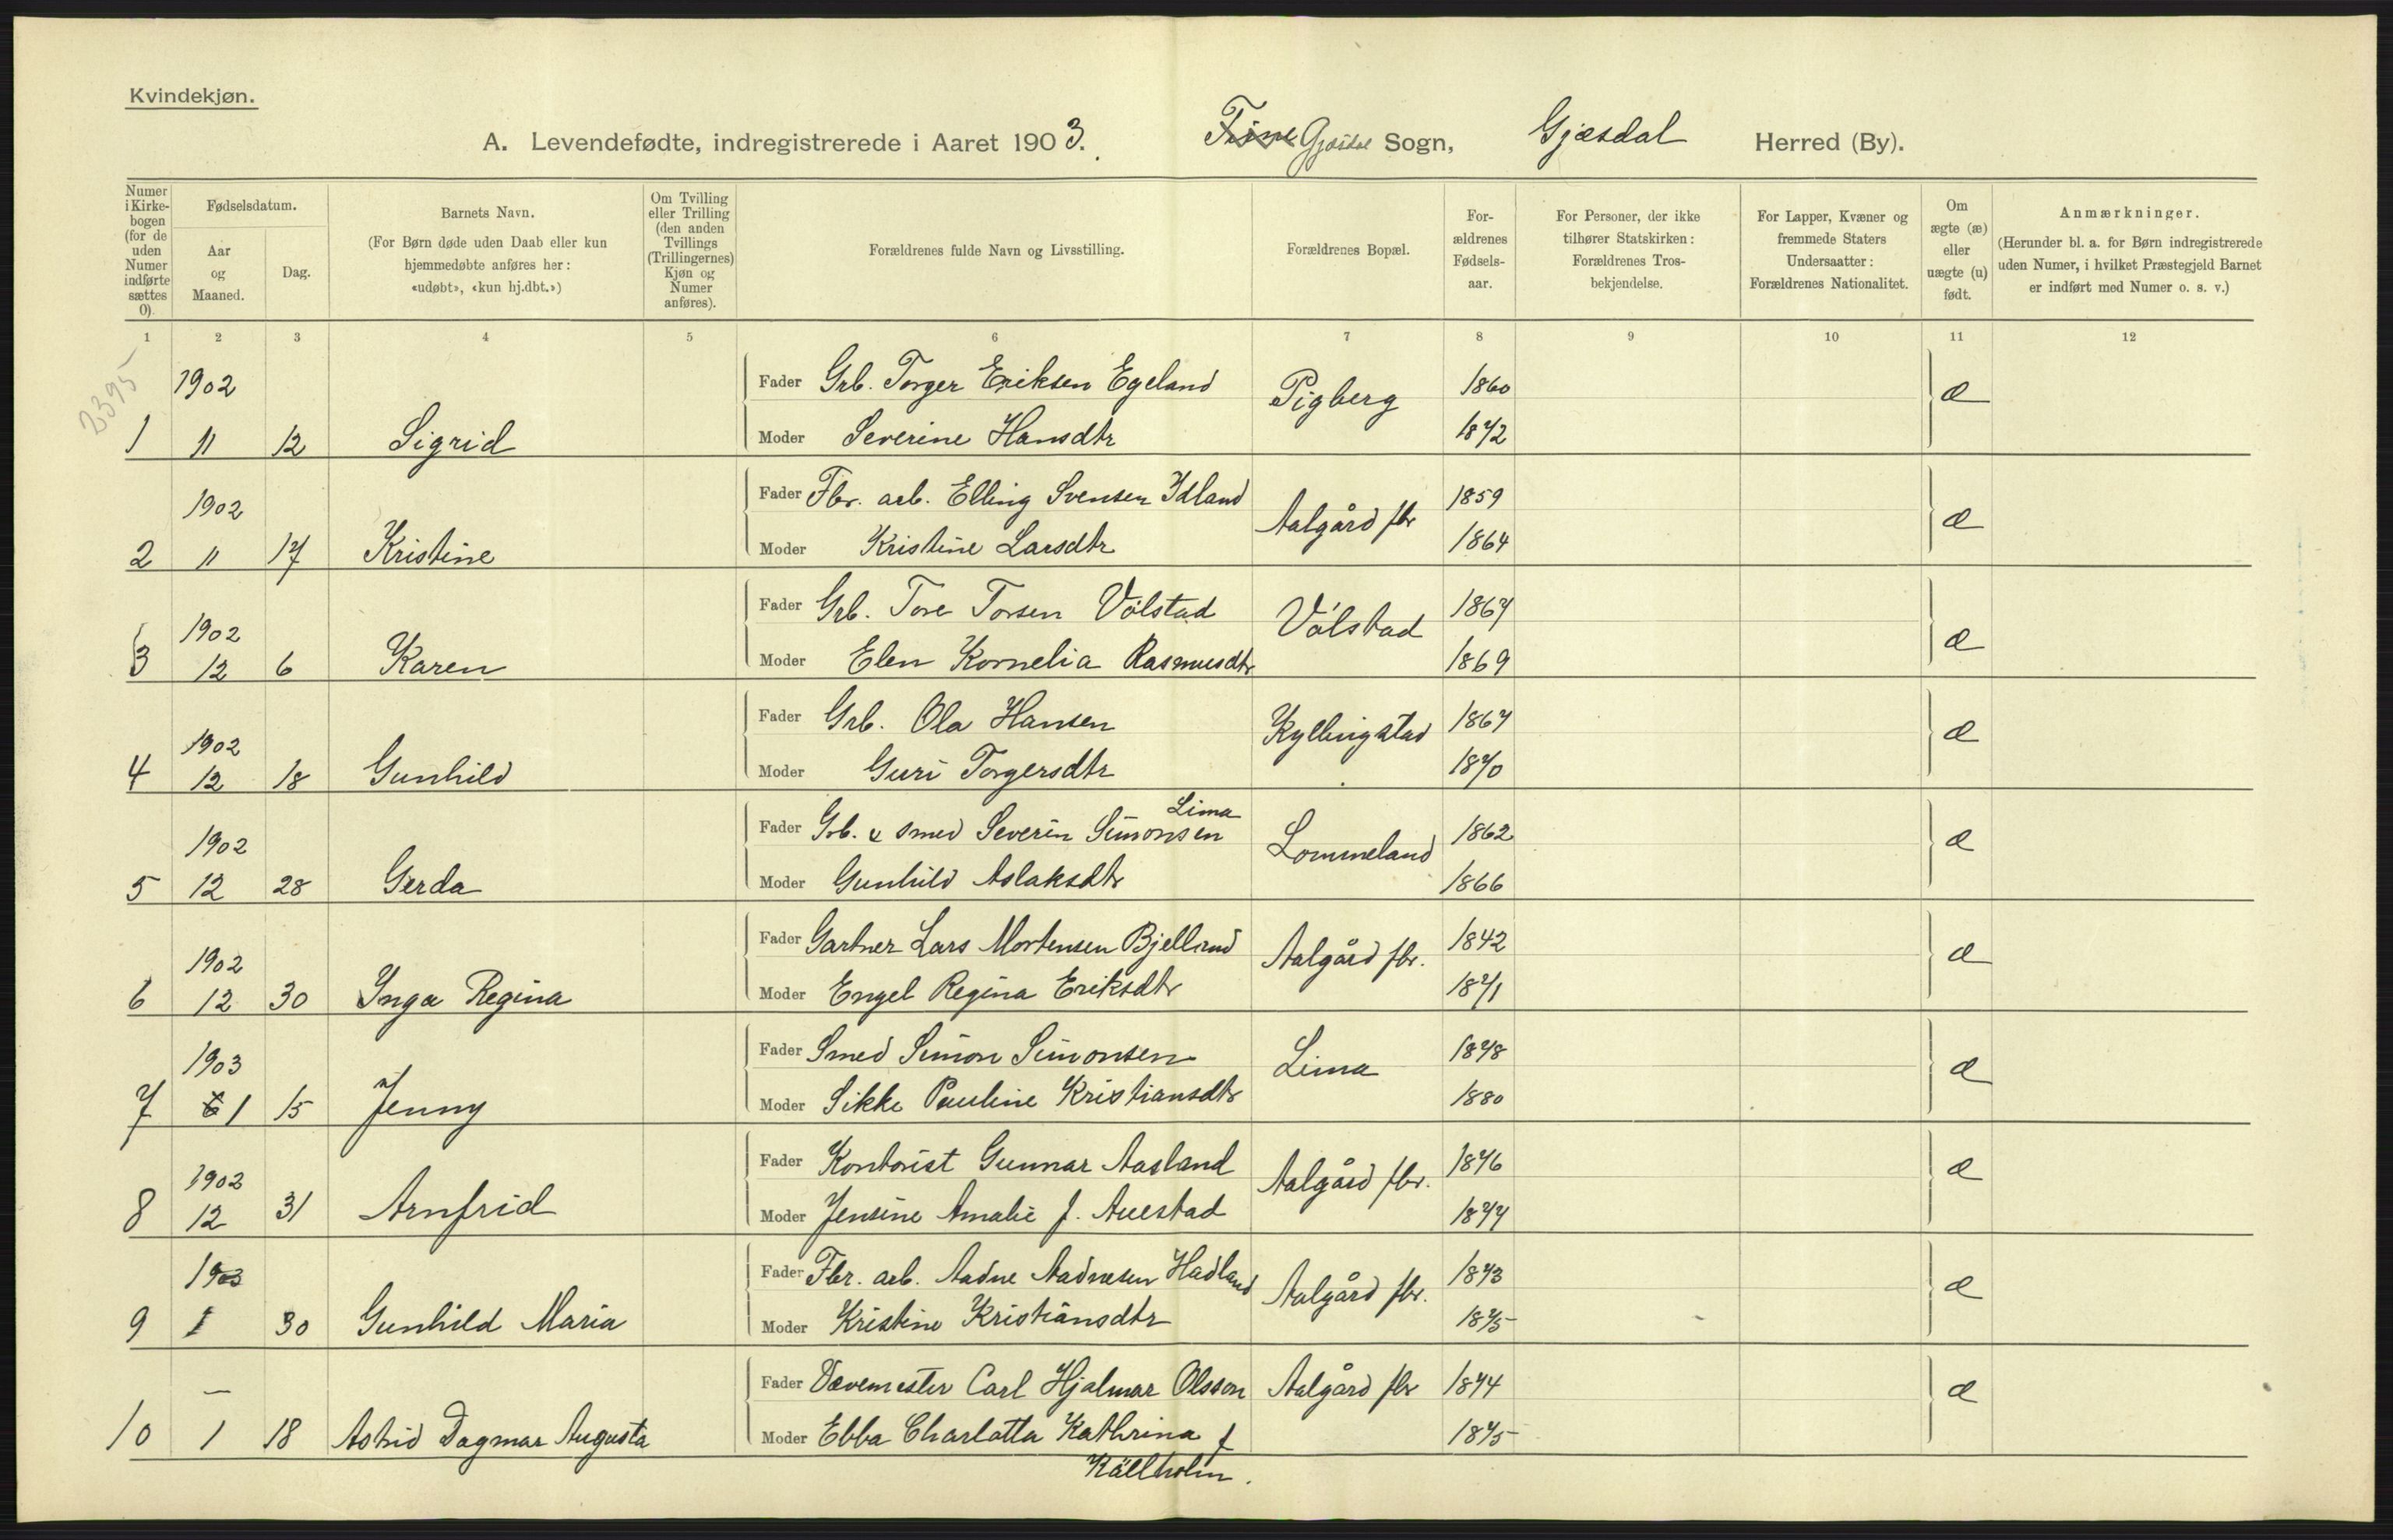 Kvindekjøn.
A. Levendefødte, indregistrerede i Aaret 1903. Gjæsdal Sogn, Gjæsdal Herred (By).
Numer i Kirkebogen (for de uden Numer indførte sættes 0).
Fødselsdatum.
Aar og Maaned.
Dag.
Barnets Navn.
(For Børn døde uden Daab eller kun hjemmedøbte anføres her: «udøbt», «kun hj.dbt.»)
Om Tvilling eller Trilling (den anden Tvillings (Trillingernes) Kjøn og Numer anføres).
Forældrenes fulde Navn og Livsstilling.
Forældrenes Bopæl.
Forældrenes Fødselsaar.
For Personer, der ikke tilhører Statskirken: Forældrenes Trosbekjendelse.
For Lapper, Kvæner og fremmede Staters Undersaatter: Forældrenes Nationalitet.
Om ægte (æ) eller uægte (u) født.
Anmærkninger.
(Herunder bl. a. for Børn indregistrerede uden Numer, i hvilket Præstegjeld Barnet er indført med Numer o. s. v.)
1 2 3 4 5 6 7 8 9 10 11 12
2395
1902 Fader Grb. Torger Eriksen Egeland Pigberg 1860 æ
1 11 12 Sigrid Moder Severine Hansdtr 1872
1902 Fader Fbr. arb. Elling Svensen Idland Aalgård fbr 1859 æ
2 11 17 Kristine Moder Kristine Larsdtr 1864
1902 Fader Grb. Tore Torsen Vølstad Vølstad 1867 æ
3 12 6 Karen Moder Elen Kornelia Rasmusdtr 1869
1902 Fader Grb. Ola Hansen Kyllingstad 1867 æ
4 12 18 Gunhild Moder Guri Torgersdtr 1870
1902 Fader Grb. & smed Severin Simonsen Lima Lommeland 1862 æ
5 12 28 Gerda Moder Gunhild Aslaksdtr 1866
1902 Fader Gartner Lars Mortensen Bjelland Aalgård fbr. 1842 æ
6 12 30 Inga Regina Moder Engel Regina Eriksdtr 1871
1903 Fader Smed Simon Simonsen Lima 1878 æ
7 1 15 Jenny Moder Sikke Pauline Kristiansdtr 1880
1902 Fader Kontorist Gunnar Aasland Aalgård fbr. 1876 æ
8 12 31 Arnfrid Moder Jensine Amalie f. Auestad 1877
1903 Fader Fbr. arb. Aadne Aadnesen Hadland Aalgård fbr. 1873 æ
9 1 30 Gunhild Maria Moder Kristine Kristiansdtr 1875
— Fader Vævemester Carl Hjalmar Olsson Aalgård fbr 1874 æ
10 1 18 Astrid Dagmar Augusta Moder Ebba Charlotta Kathrina f 1875
Källholm.